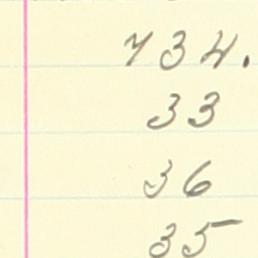 734.
33
36
35